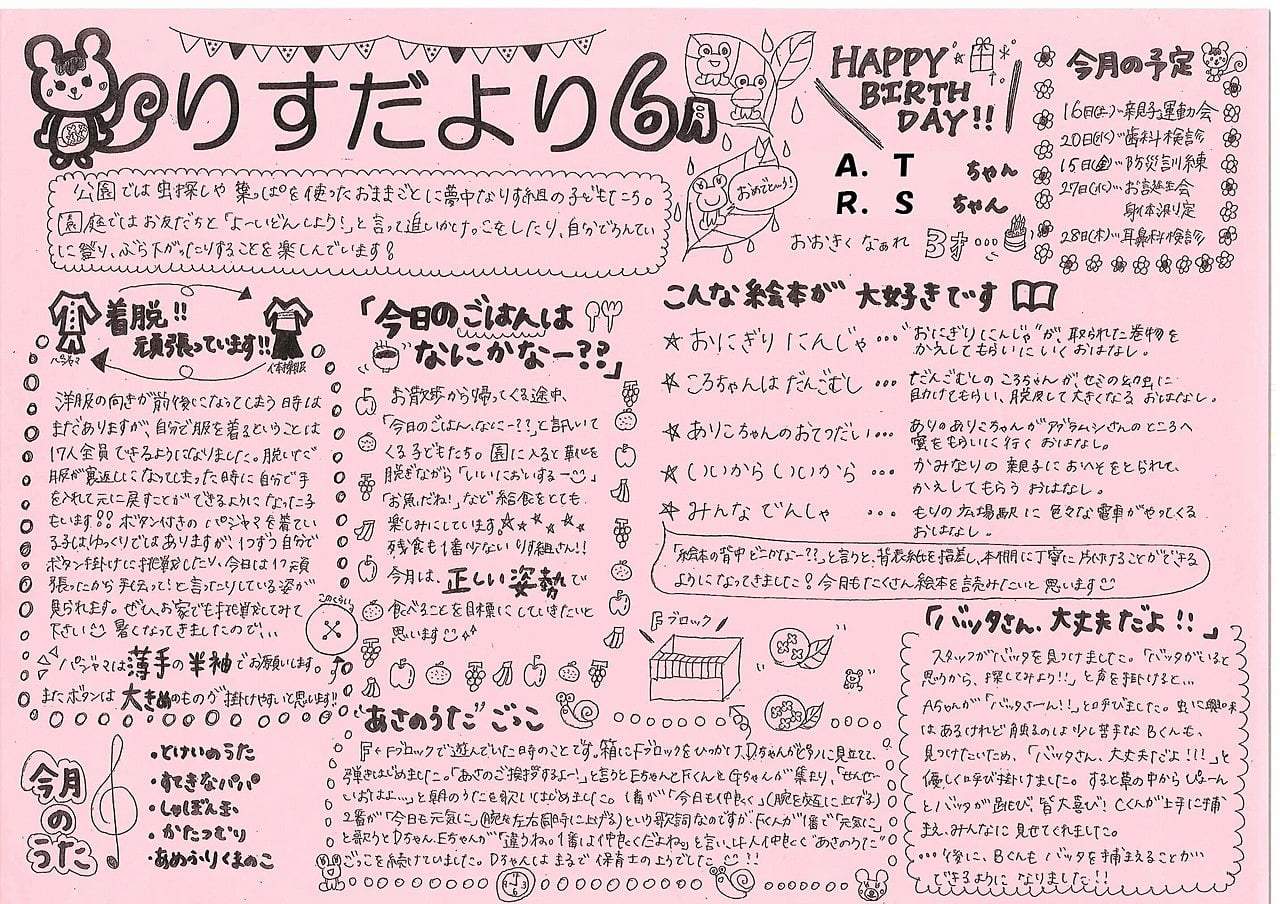 りすだより6月
公園では虫探しや葉っぱを使ったおままごとに夢中なりす組の子どもたち。
園庭ではお友だちと「よーいどんしよう!」と言って追いかけっこをしたり、自分でうんてい
に登り、ぶら下がったりすることを楽しんでいます!
おめでとう!
HAPPY
BIRTH
DAY!!
A. T ちゃん
R. S ちゃん
おおきくなぁれ 3才…
今月の予定
16日(土)…親子運動会
20日(水)…歯科検診
15日(金)…防災訓練
27日(水)…お誕生会
身体測定
28日(木)…耳鼻科検診
着脱!!
頑張っています!!
パジャマ
体操服
洋服の向きが前後になってしまう日時は
まだありますが、自分で服を着るということは
17人全員できるようになりました。脱いで
服が裏返しになってしまった時に自分で手
を入れて元に戻すことができるようになった子
もいます!! ボタン付きのパジャマを着てい
る子はゆっくりではありますが、1つずつ自分で
ボタン掛けに挑戦したり、今日は1つ頑
張ったから手伝って!と言ったりしている姿が
見られます。ぜひ、お家でも挑戦してみて
下さい 暑くなってきましたので…
このくらい
パジャマは薄手の半袖でお願いします。
またボタンは大きめのものが掛けやすいと思います!!
「今日のごはんは
なにかなー??」
お散歩から帰ってくる途中、
「今日のごはん、なにー??」と訊いて
くる子どもたち。園に入ると靴を
脱ぎながら「いいにおいするー」
「お魚だね!」など給食をとても
楽しみにしています。
残食も1番少ないりす組さん!!
今月は、正しい姿勢で
食べることを目標にしていきたいと
思います
こんな絵本が大好きです
☆おにぎりにんじゃ…"おにぎりにんじゃ"が、取られた巻物を
かえしてもらいにいくおはなし。
☆ころちゃんはだんごむし…だんごむしのころちゃんが、セミの幼虫に
助けてもらい、脱皮して大きくなるおはなし。
☆ありこちゃんのおてつだい…ありのありこちゃんがアブラムシさんのところへ
蜜をもらいに行くおはなし。
☆いいからいいから…かみなりの親子におへそをとられて、
かえしてもらうおはなし。
☆みんなでんしゃ…もりの広場駅に色々な電車がやってくる
おはなし。
「絵本の背中どこかなー??」と言うと、背表紙を指差し、本棚に丁寧に片付けることができる
ようになってきました!今月もたくさん絵本を読みたいと思います
Fブロック
「バッタさん、大丈夫だよ!!」
スタッフがバッタを見つけました。「バッタがいると
思うから、探してみよう!!」と声を掛けると…
Aちゃんが「バッタさーん!!」と呼びました。虫に興味
はあるけれど触るのは少し苦手なBくんも、
見つけたいため、「バッタさん、大丈夫だよ!!!」と
優しく呼び掛けました。すると草の中からぴょーん
とバッタが跳び、皆大喜び!Cくんが上手に捕
まえ、みんなに見せてくれました。
…後に、Bくんもバッタを捕まえることが
できるようになりました!!
"あさのうた"ごっこ
Fブロックで遊んでいた時のことです。箱にFブロックをひっつけ、Dちゃんがピアノに見立てて、
弾きはじめました。「あさのご挨拶するよー!」と言うとEちゃんとFくんとGちゃんが集まり、「せんせー
いおはよ…」と朝のうたを歌いはじめました。1番が「今日も仲良く」(腕を交互に上げる)
2番が「今日も元気に」(腕を左右同時に上げる)という歌詞なのですが、Fくんが1番で「元気に」
と歌うとDちゃん、Eちゃんが「違うね。1番は仲良くだよね。」と言い、4人仲良く"あさのうた"
ごっこを続けていました。Dちゃんはまるで保育士のようでした!!
今月
の
うた
・とけいのうた
・すてきなパパ
・しゃぼんだま
・かたつむり
・あめふりくまのこ